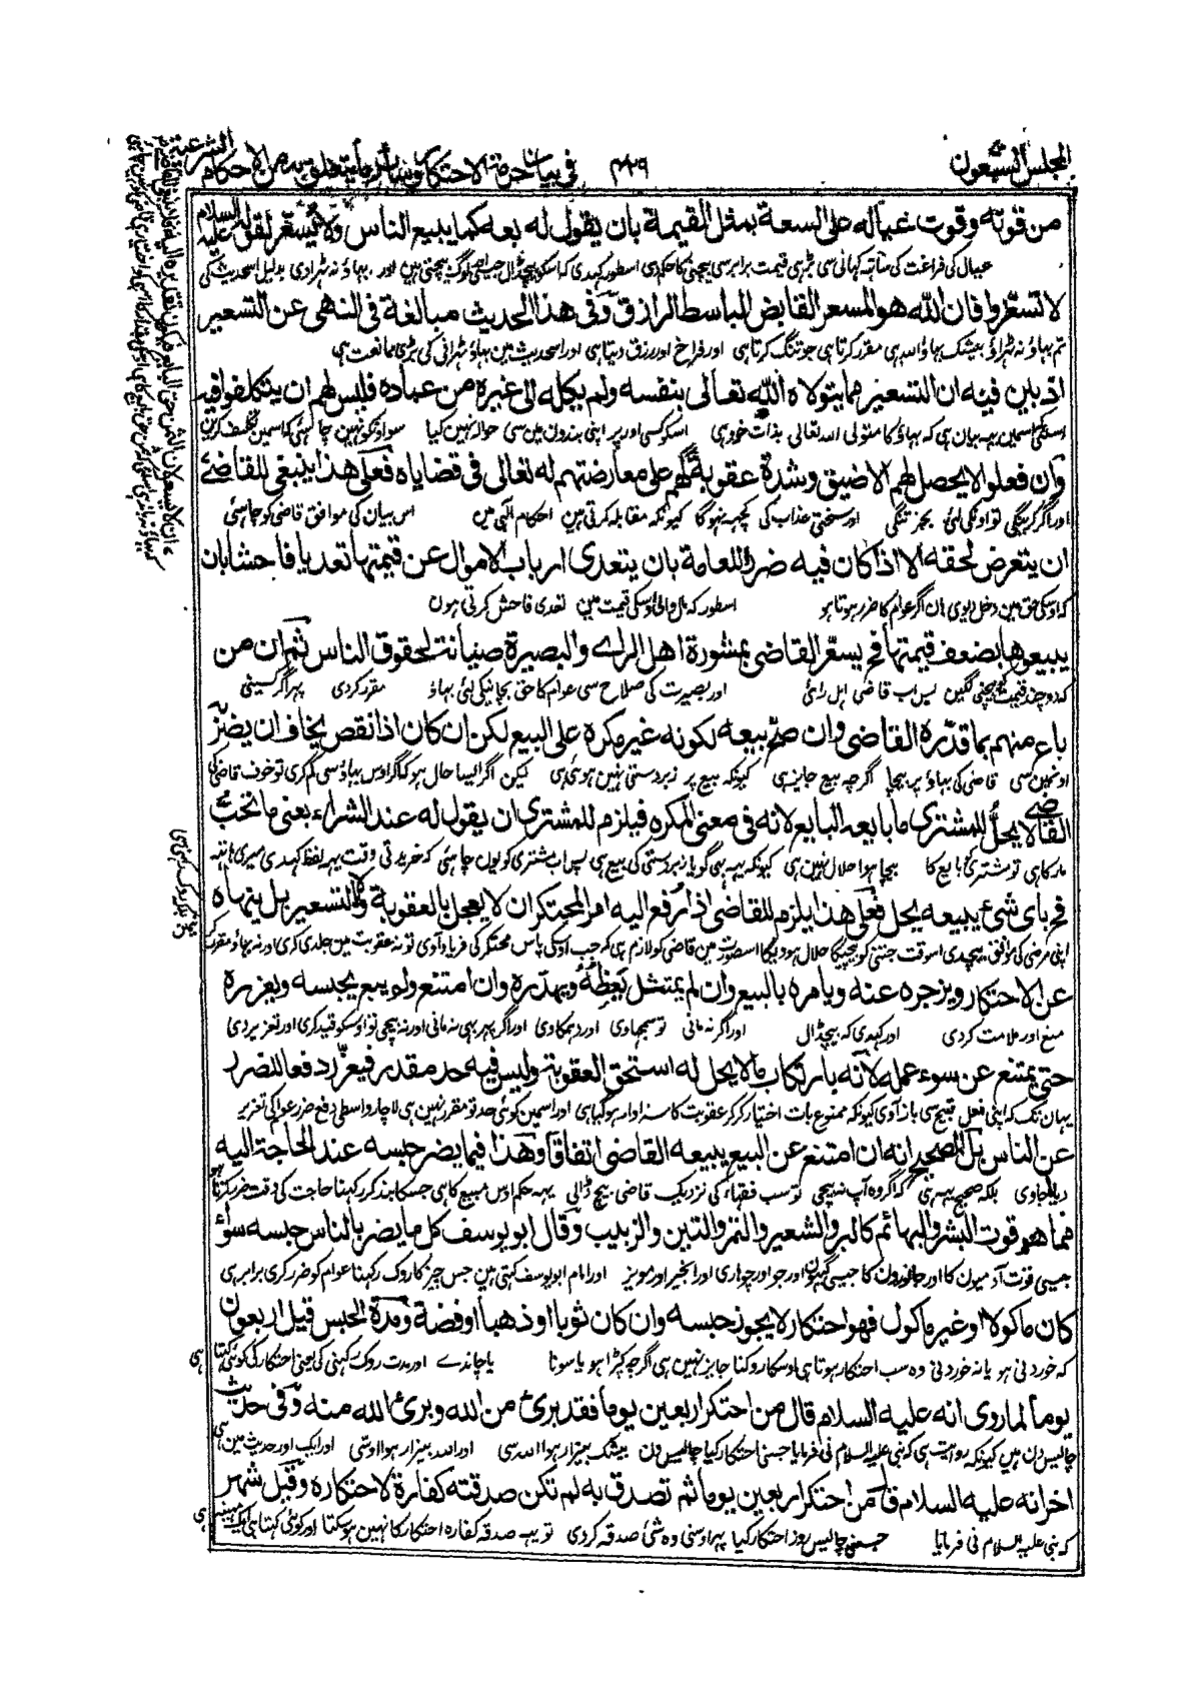 المجلس السبعون
٤٢٩
فی بیان حرمة الاحتکار وبیان ما یتعلق به من الاحکام الشرعیة
من قوته وقوت عیاله علی السعة بمثل القیمة بان یقول له بعه کما یبیع الناس ولا یسعّر لقوله علیه السلام
عیال کی فراغت کی ساتهہ کهانی سی قیمت برابر سی بیچنی کا حکم دی اسطور کہدی کہ اسکو بیچڈال جیسی لوگ بیچتی ہین اور بہاؤ نہ ٹہرادی بدلیل اسحدیث کی
لا تسعّروا فان الله هو المسعر القابض الباسط الرازق وفی هذا الحدیث مبالغة فی النهی عن التسعیر
تم بہاؤ نہ ٹہراؤ بیشک بہاؤ اللہ ہی مقرر کرتا ہی جو تنگ کرتا ہی اور فراخ اور رزق دیتا ہی اور اسحدیث مین بہاؤ ٹہرانی کی بڑی ممانعت ہی
اذ بین فیه ان التسعیر مما یتولاه الله تعالی بنفسه ولم یکله الی غیره من عباده فلیس لهم ان یتکلفوا فیه
اسلئی اسمین یہہ بیان ہی کہ بہاؤ کا متولی اللہ تعالی بذات خود ہی اسکو کسی اور پر اپنی بندون مین سی حوالہ نہین کیا سو اونکو نہین چاہئی کہ اسمین تکلیف کرین
وان فعلوا لا یحصل لهم الا ضیق وشدة عقوبة لهم علی معارضتهم له تعالی فی قضایاه فعلی هذا ینبغی للقاضی
اور اگر کرینگی تو اونکی لئی بجز تنگی اور سختی عذاب کی کچهہ نہوگا کیونکہ مقابلہ کرتی ہین احکام الہی مین اس بیان کی موافق قاضی کو چاہئی
ان یتعرض لحقه الا اذا کان فیه ضرر للعامة بان یتعدی ارباب الاموال عن قیمتها تعدیا فاحشا بان
کہ اوسکی حق مین دخل دیوی ہان اگر عوام کا ضرر ہوتا ہو اسطور کہ مال والی اوسکی قیمت مین تعدی فاحش کرتی ہون
یبیعوها بضعف قیمتها فح یسعّر القاضی بمشورة اهل الرای والبصیرة صیانة لحقوق الناس ثم ان من
کہ دوچند قیمت کو بیچنی لگین پس اب قاضی اہل رائی اور بصیرت کی صلاح سی عوام کا حق بچانیکی لئی بہاؤ مقرر کردی پہر اگر کسینی
باع منهم بما قدّره القاضی وان صح بیعه لکونه غیر مکره علی البیع لکن ان کان اذا نقص یخاف ان یضرّ
اونمین سی قاضی کی بہاؤ پر بیچا اگرچہ بیع جایز ہی کیونکہ بیع پر زبردستی نہین ہوئی ہی لیکن اگر ایسا حال ہو کہ اگر اوس بہاؤ سی کم کری تو خوف قاضی کی
القاضی لا یحلّ للمشتری ما باعه البایع لانه فی معنی المکره فیلزم للمشتری ان یقول له عند الشراء بعنی ما تحبّ
مار کا ہی تو مشتری کو بایع کا بیچا ہوا حلال نہین ہی کیونکہ یہہ بہی گویا زبردستی کی بیع ہی پس اب مشتری کو یون چاہئی کہ خریدتی وقت یہہ لفظ کہدی
فح بای شیئ یبیعه یحل فعلی هذا یلزم للقاضی اذا رفع الیه امر المحتکر ان لا یعجل بالعقوبة ولا التسعیر بل ینهاه
اپنی مرضی کی موافق بیچدی اسوقت جتنی کو بیچیگا حلال ہو اسصورت مین قاضی کو لازم ہی کہ جب اوسکی پاس محتکر کی فریاد آوی تو نہ عقوبت مین جلدی کری اور نہ بہاؤ مقرر
عن الاحتکار ویزجره عنه ویامره بالبیع وان لم یمتثل یعظه ویهدّده وان امتنع ولو یبع یحبسه ویعزره
منع اور ملامت کردی اور کہدی کہ بیچڈال اور اگر نہ مانی تو سمجہاوی اور دہمکاوی اور اگر پہر بہی نہ مانی اور نہ بیچی تو اوسکو قید کری اور تعزیر دی
حتی یمتنع عن سوء عمله لانه بارتکاب ما لا یحل له استحق العقوبة ولیس فیه حد مقدر فیعزّر دفعا للضرر
یہان تک کہ اپنی فعل قبیح سی باز آوی کیونکہ ممنوع بات اختیار کرکر عقوبت کا سزاوار ہوگیا ہی اور اسمین کوئی حد تو مقرر نہین ہی لاچار واسطی دفع ضرر عوام کی تعزیر
عن الناس بل الصحیح انه ان امتنع عن البیع یبیعه القاضی اتفاقا وهذا فیما یضر حبسه عند الحاجة الیه
دیا جاوی بلکہ صحیح یہہ ہی کہ اگر وہ آپ نہ بیچی تو سب فقہاء کی نزدیک قاضی بیچ ڈالی یہہ حکم اوس مبیع کا ہی جسکا بند کر رکہنا حاجت کی وقت ضرر کرتا ہو
مما هو قوت البشر والبهائم کالبر والشعیر والتمر والتین والزبیب وقال ابو یوسف کل ما یضر بالناس حبسه سواء
جیسی قوت آدمیون کا اور جانورون کا جیسی گیہون اور جو اور چوہاری اور انجیر اور مویز اور امام ابو یوسف کہتی ہین جس چیز کا روک رکہنا عوام کو ضرر کری برابر ہی
کان ماکولا او غیر ماکول فهو احتکار لا یجوز حبسه وان کان ثوبا او ذهبا او فضة ومدة الحبس قیل اربعون
کہ خوردنی ہو یا نہ خوردنی وہ سب احتکار ہوتا ہی اوسکا روکنا جایز نہین ہی اگرچہ کپڑا ہو یا سونا یا چاندی اور مدت روک رکہنی کی یعنی احتکار کی کوئی کہتا ہی
یوما لما روی انه علیه السلام قال من احتکر اربعین یوما فقد برئ من الله وبرئ الله منه وفی حدیث
چالیس دن ہین کیونکہ روایت ہی کہ نبی علیہ السلام نی فرمایا جسنی احتکار کیا چالیس دن بیشک بیزار ہوا اللہ سی اور اللہ بیزار ہوا اوسی اور ایک اور حدیث مین ہی
اخر انه علیه السلام قال من احتکر اربعین یوما ثم تصدق به لم تکن صدقته کفارة لاحتکاره وقیل شهر
کہ نبی علیہ السلام نی فرمایا جسنی چالیس روز احتکار کیا پہر اوسنی وہ شئ صدقہ کردی تو یہہ صدقہ کفارہ احتکار کا نہین ہوسکتا اور کوئی کہتا ہی ایک مہینہ ہی